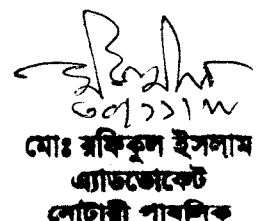 মোঃ রফিকুল ইসলাম
এ্যাডভোকেট
নোটারী পাবলিক